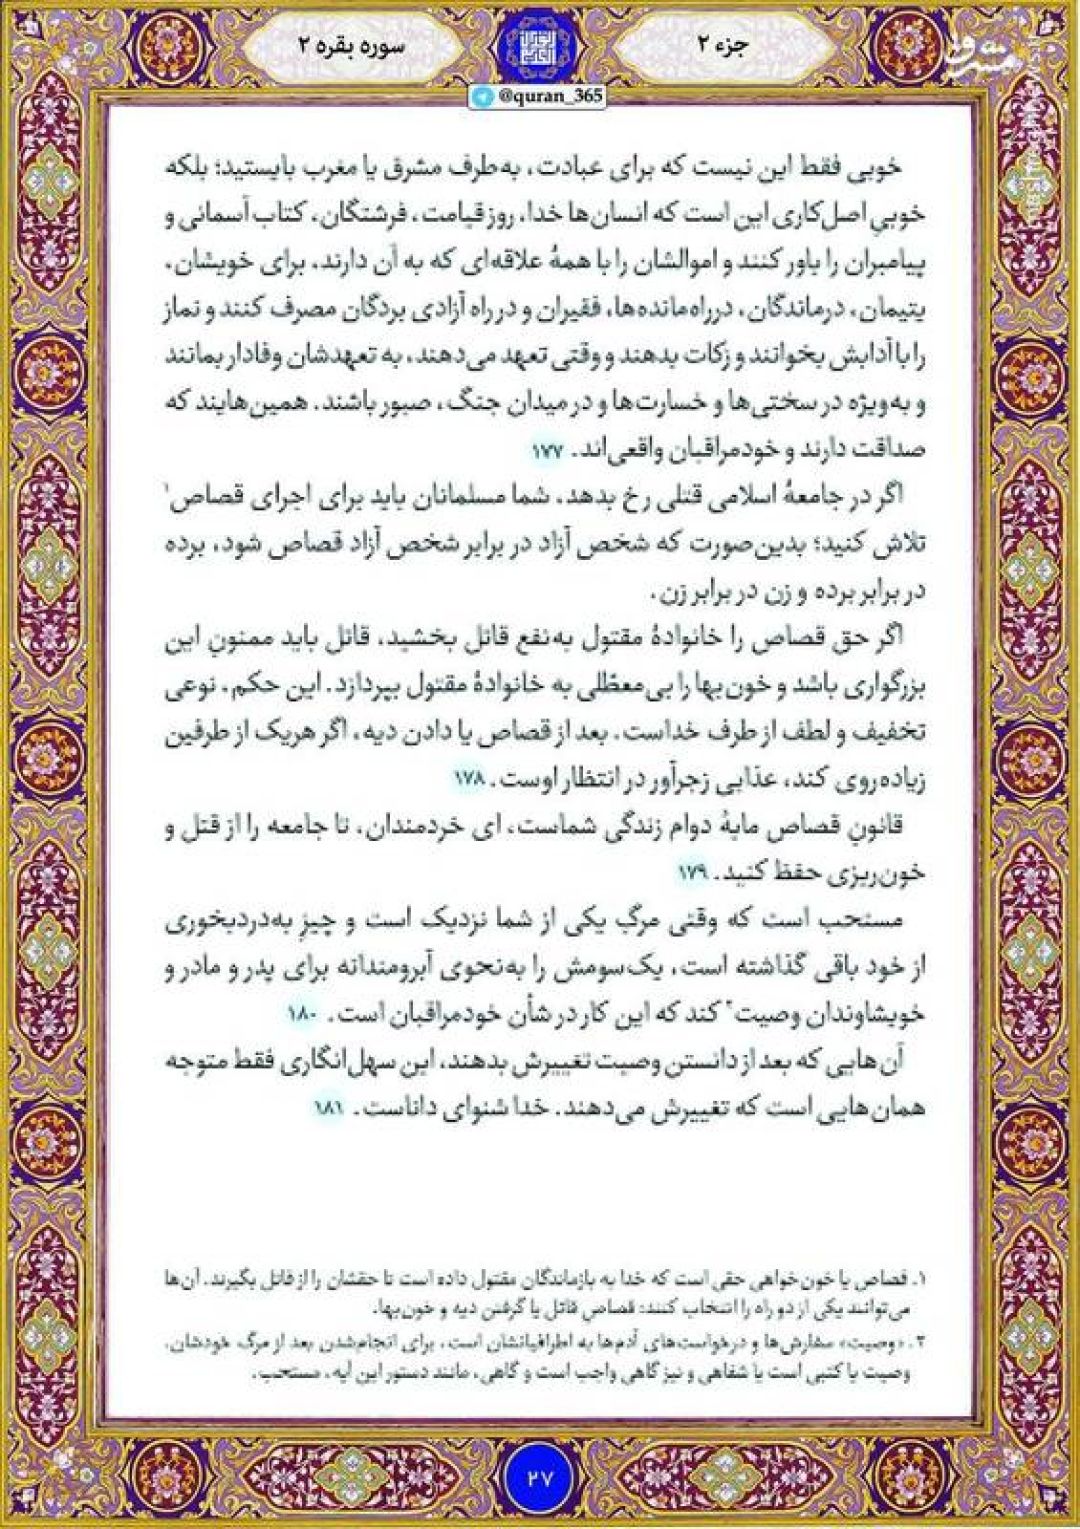 جزء ۲
سوره بقره ۲
@quran_365
خوبی فقط این نیست که برای عبادت، به‌طرف مشرق یا مغرب بایستید؛ بلکه
خوبیِ اصل‌کاری این است که انسان‌ها خدا، روز قیامت، فرشتگان، کتاب آسمانی و
پیامبران را باور کنند و اموالشان را با همهٔ علاقه‌ای که به آن دارند، برای خویشان،
یتیمان، درماندگان، درراه‌مانده‌ها، فقیران و در راه آزادی بردگان مصرف کنند و نماز
را با آدابش بخوانند و زکات بدهند و وقتی تعهد می‌دهند، به تعهدشان وفادار بمانند
و به‌ویژه در سختی‌ها و خسارت‌ها و در میدان جنگ، صبور باشند. همین‌هایند که
صداقت دارند و خودمراقبان واقعی‌اند. ۱۷۷
اگر در جامعهٔ اسلامی قتلی رخ بدهد، شما مسلمانان باید برای اجرای قصاص۱
تلاش کنید؛ بدین‌صورت که شخص آزاد در برابر شخص آزاد قصاص شود، برده
در برابر برده و زن در برابر زن.
اگر حق قصاص را خانوادهٔ مقتول به‌نفع قاتل بخشید، قاتل باید ممنونِ این
بزرگواری باشد و خون‌بها را بی‌معطّلی به خانوادهٔ مقتول بپردازد. این حکم، نوعی
تخفیف و لطف از طرف خداست. بعد از قصاص یا دادن دیه، اگر هریک از طرفین
زیاده‌روی کند، عذابی زجرآور در انتظار اوست. ۱۷۸
قانونِ قصاص مایهٔ دوام زندگی شماست، ای خردمندان، تا جامعه را از قتل و
خون‌ریزی حفظ کنید. ۱۷۹
مستحب است که وقتی مرگ یکی از شما نزدیک است و چیزِ به‌دردبخوری
از خود باقی گذاشته است، یک‌سومش را به‌نحوی آبرومندانه برای پدر و مادر و
خویشاوندان وصیت۲ کند که این کار در شأن خودمراقبان است. ۱۸۰
آن‌هایی که بعد از دانستن وصیت تغییرش بدهند، این سهل‌انگاری فقط متوجه
همان‌هایی است که تغییرش می‌دهند. خدا شنوای داناست. ۱۸۱
۱. قصاص یا خون‌خواهی حقی است که خدا به بازماندگان مقتول داده است تا حقشان را از قاتل بگیرند. آن‌ها
می‌توانند یکی از دو راه را انتخاب کنند: قصاص قاتل یا گرفتن دیه و خون‌بها.
۲. «وصیت» سفارش‌ها و درخواست‌های آدم‌ها به اطرافیانشان است، برای انجام‌شدن بعد از مرگ خودشان.
وصیت یا کتبی است یا شفاهی و نیز گاهی واجب است و گاهی، مانند دستور این آیه، مستحب.
۲۷